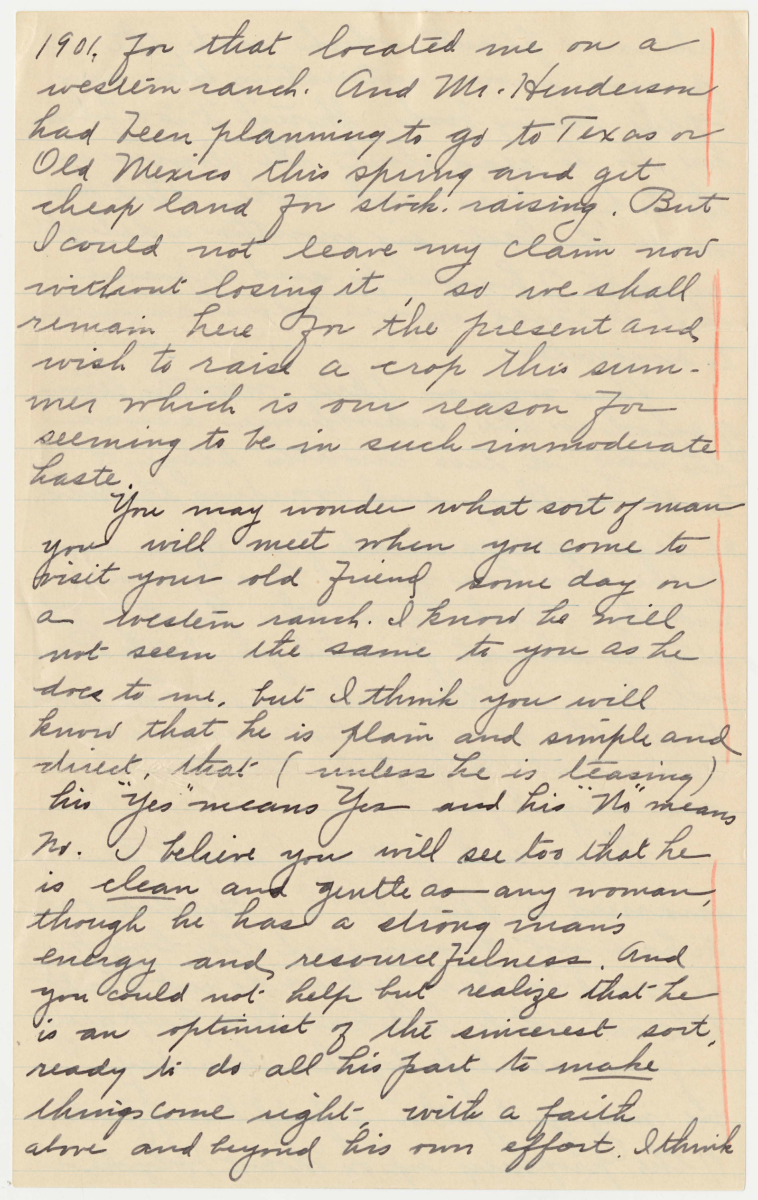 1901, for that located me on a
western ranch. And Mr. Henderson
had been planning to go to Texas or
Old Mexico this spring and get
cheap land for stock-raising. But
I could not leave my claim now
without losing it, so we shall
remain here for the present and
wish to raise a crop this sum-
mer which is our reason for
seeming to be in such immoderate
haste.
You may wonder what sort of man
you will meet when you come to
visit your old friend some day on
a western ranch. I know he will
not seem the same to you as he
does to me, but I think you will
know that he is plain and simple and
direct, that (unless he is teasing)
his "Yes" means Yes and his "No" means
No. I believe you will see too that he
is clean and gentle as any woman,
though he has a strong man's
energy and resourcefulness. And
you could not help but realize that he
is an optimist of the sincerest sort,
ready to do all his part to make
things come right, with a faith
above and beyond his own effort. I think